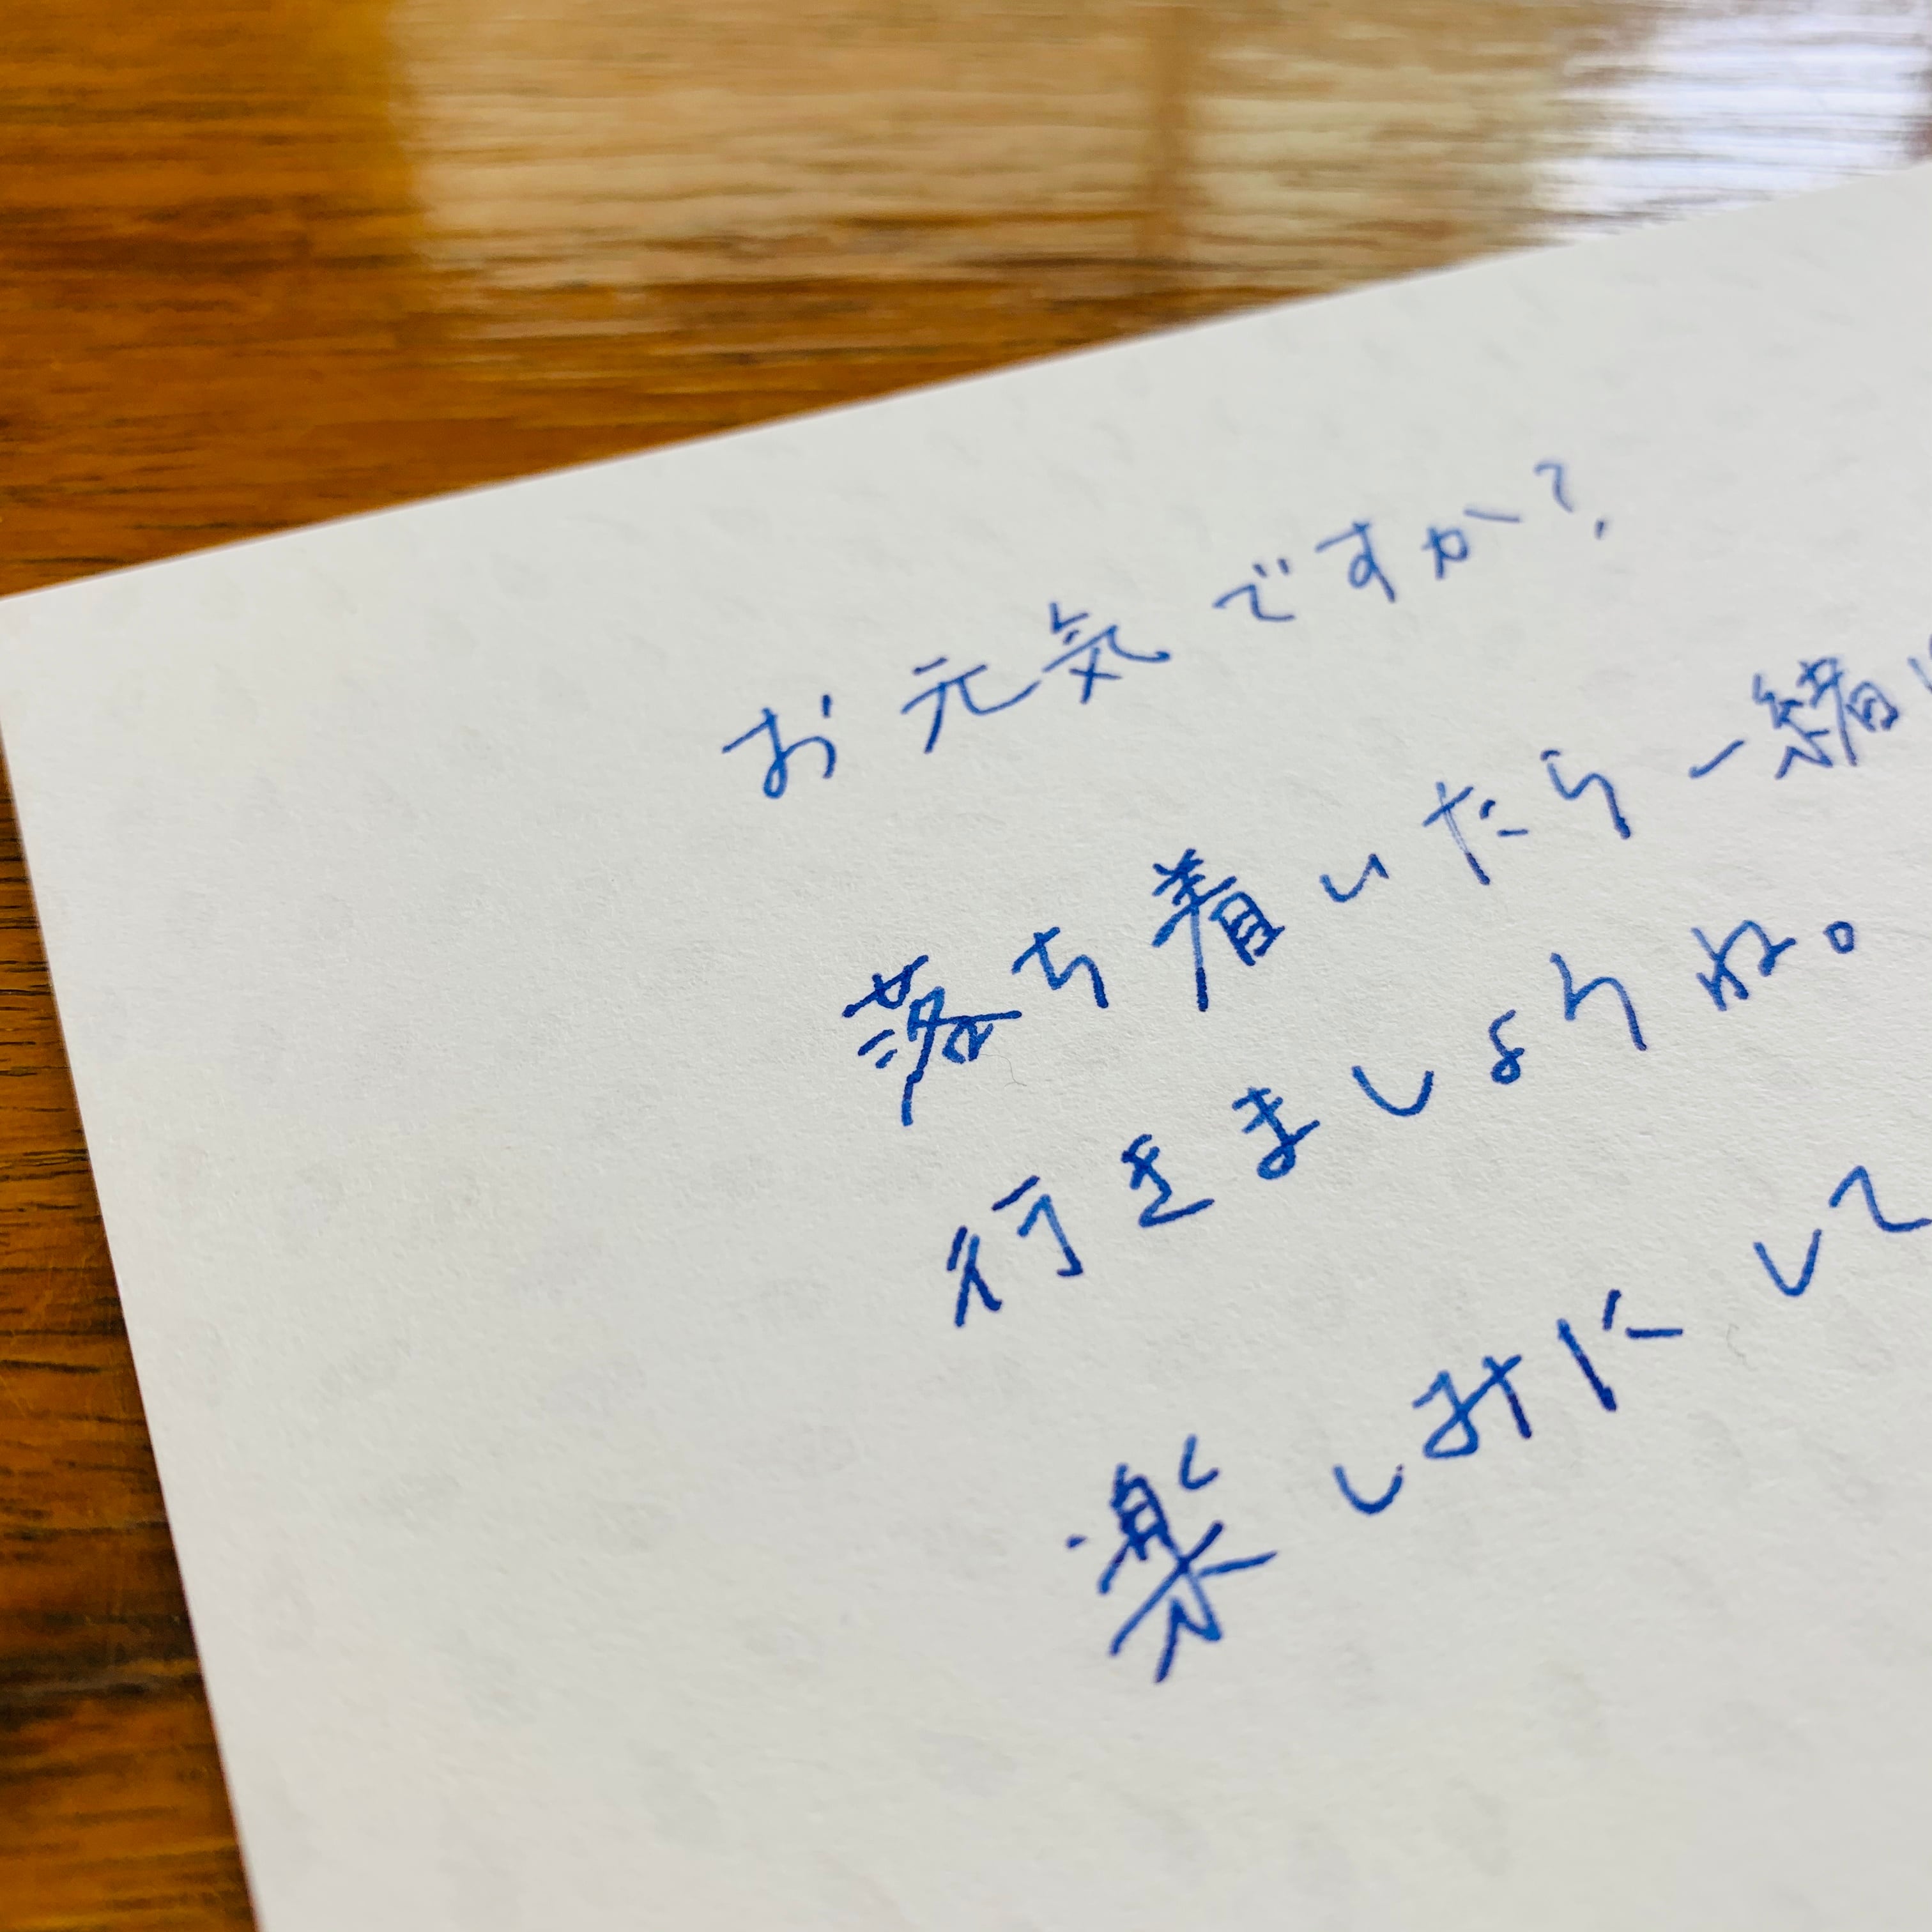 お元気ですか?
落ち着いたら一緒に
行きましょうね。
楽しみにして